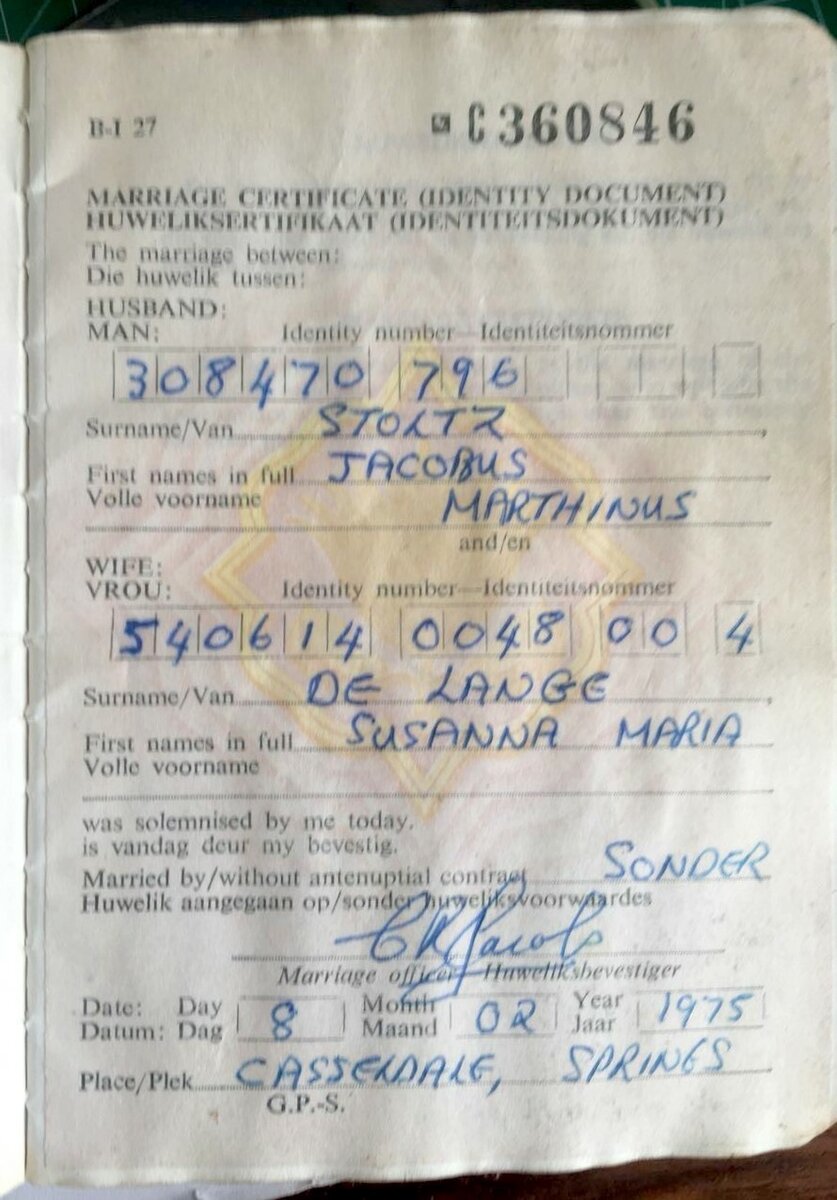 B-I 27
C360846
MARRIAGE CERTIFICATE (IDENTITY DOCUMENT)
HUWELIKSERTIFIKAAT (IDENTITEITSDOKUMENT)
The marriage between:
Die huwelik tussen:
HUSBAND:
MAN: Identity number—Identiteitsnommer
308470 796
Surname/Van STOLTZ
First names in full JACOBUS
Volle voorname MARTHINUS
and/en
WIFE:
VROU: Identity number—Identiteitsnommer
540614 0048 00 4
Surname/Van DE LANGE
First names in full SUSANNA MARIA
Volle voorname
was solemnised by me today.
is vandag deur my bevestig.
Married by/without antenuptial contract SONDER
Huwelik aangegaan op/sonder huweliksvoorwaardes
Marriage officer—Huweliksbevestiger
Date: Day 8 Month 02 Year 1975
Datum: Dag Maand Jaar
Place/Plek CASSELDALE, SPRINGS
G.P.-S.